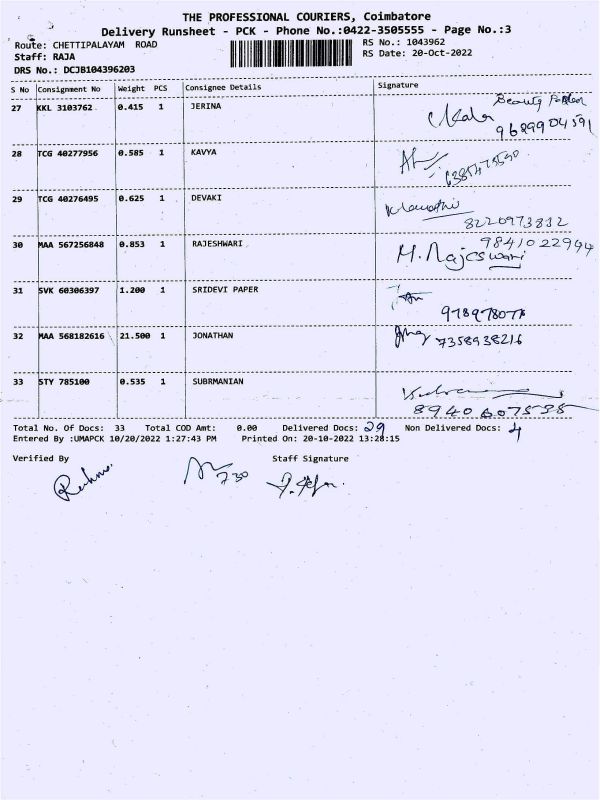 THE PROFESSIONAL COURIERS, Coimbatore
Delivery Runsheet - PCK - Phone No.:0422-3505555 - Page No.:3
Route: CHETTIPALAYAM ROAD RS No.: 1043962
Staff: RAJA RS Date: 20-Oct-2022
DRS No.: DCJB104396203
S No Consignment No Weight PCS Consignee Details Signature
27 KKL 3103762 0.415 1 JERINA
9689904591
28 TCG 40277956 0.585 1 KAVYA
29 TCG 40276495 0.625 1 DEVAKI
8220973832
30 MAA 567256848 0.853 1 RAJESHWARI 9841022994
M. Rajeswari
31 SVK 60306397 1.200 1 SRIDEVI PAPER
32 MAA 568182616 21.500 1 JONATHAN 7358938216
33 STY 785100 0.535 1 SUBRMANIAN
Total No. Of Docs: 33 Total COD Amt: 0.00 Delivered Docs: 29 Non Delivered Docs: 4
Entered By :UMAPCK 10/20/2022 1:27:43 PM Printed On: 20-10-2022 13:28:15
Verified By Staff Signature
730